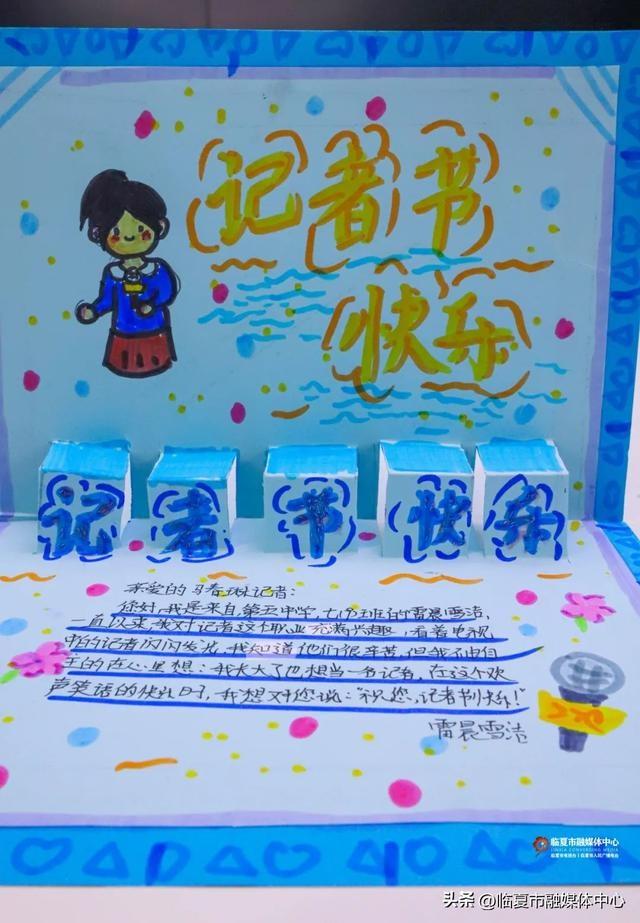 记者节
快乐
记者节快乐
亲爱的马春琳记者:
您好,我是来自第五中学,七(9)班的雷晨雪洁,
一直以来我对记者这个职业充满兴趣,看着电视
中的记者闪闪发光,我知道他们很辛苦,但我不由自
主的在心里想:我长大了也想当一名记者,在这个欢
声笑语的快乐日子,我想对您说:“祝您,记者节快乐!”
雷晨雪洁
临夏市融媒体中心
LINXIA CONVERGING MEDIA
临夏市电视台|临夏市人民广播电台
头条 @临夏市融媒体中心